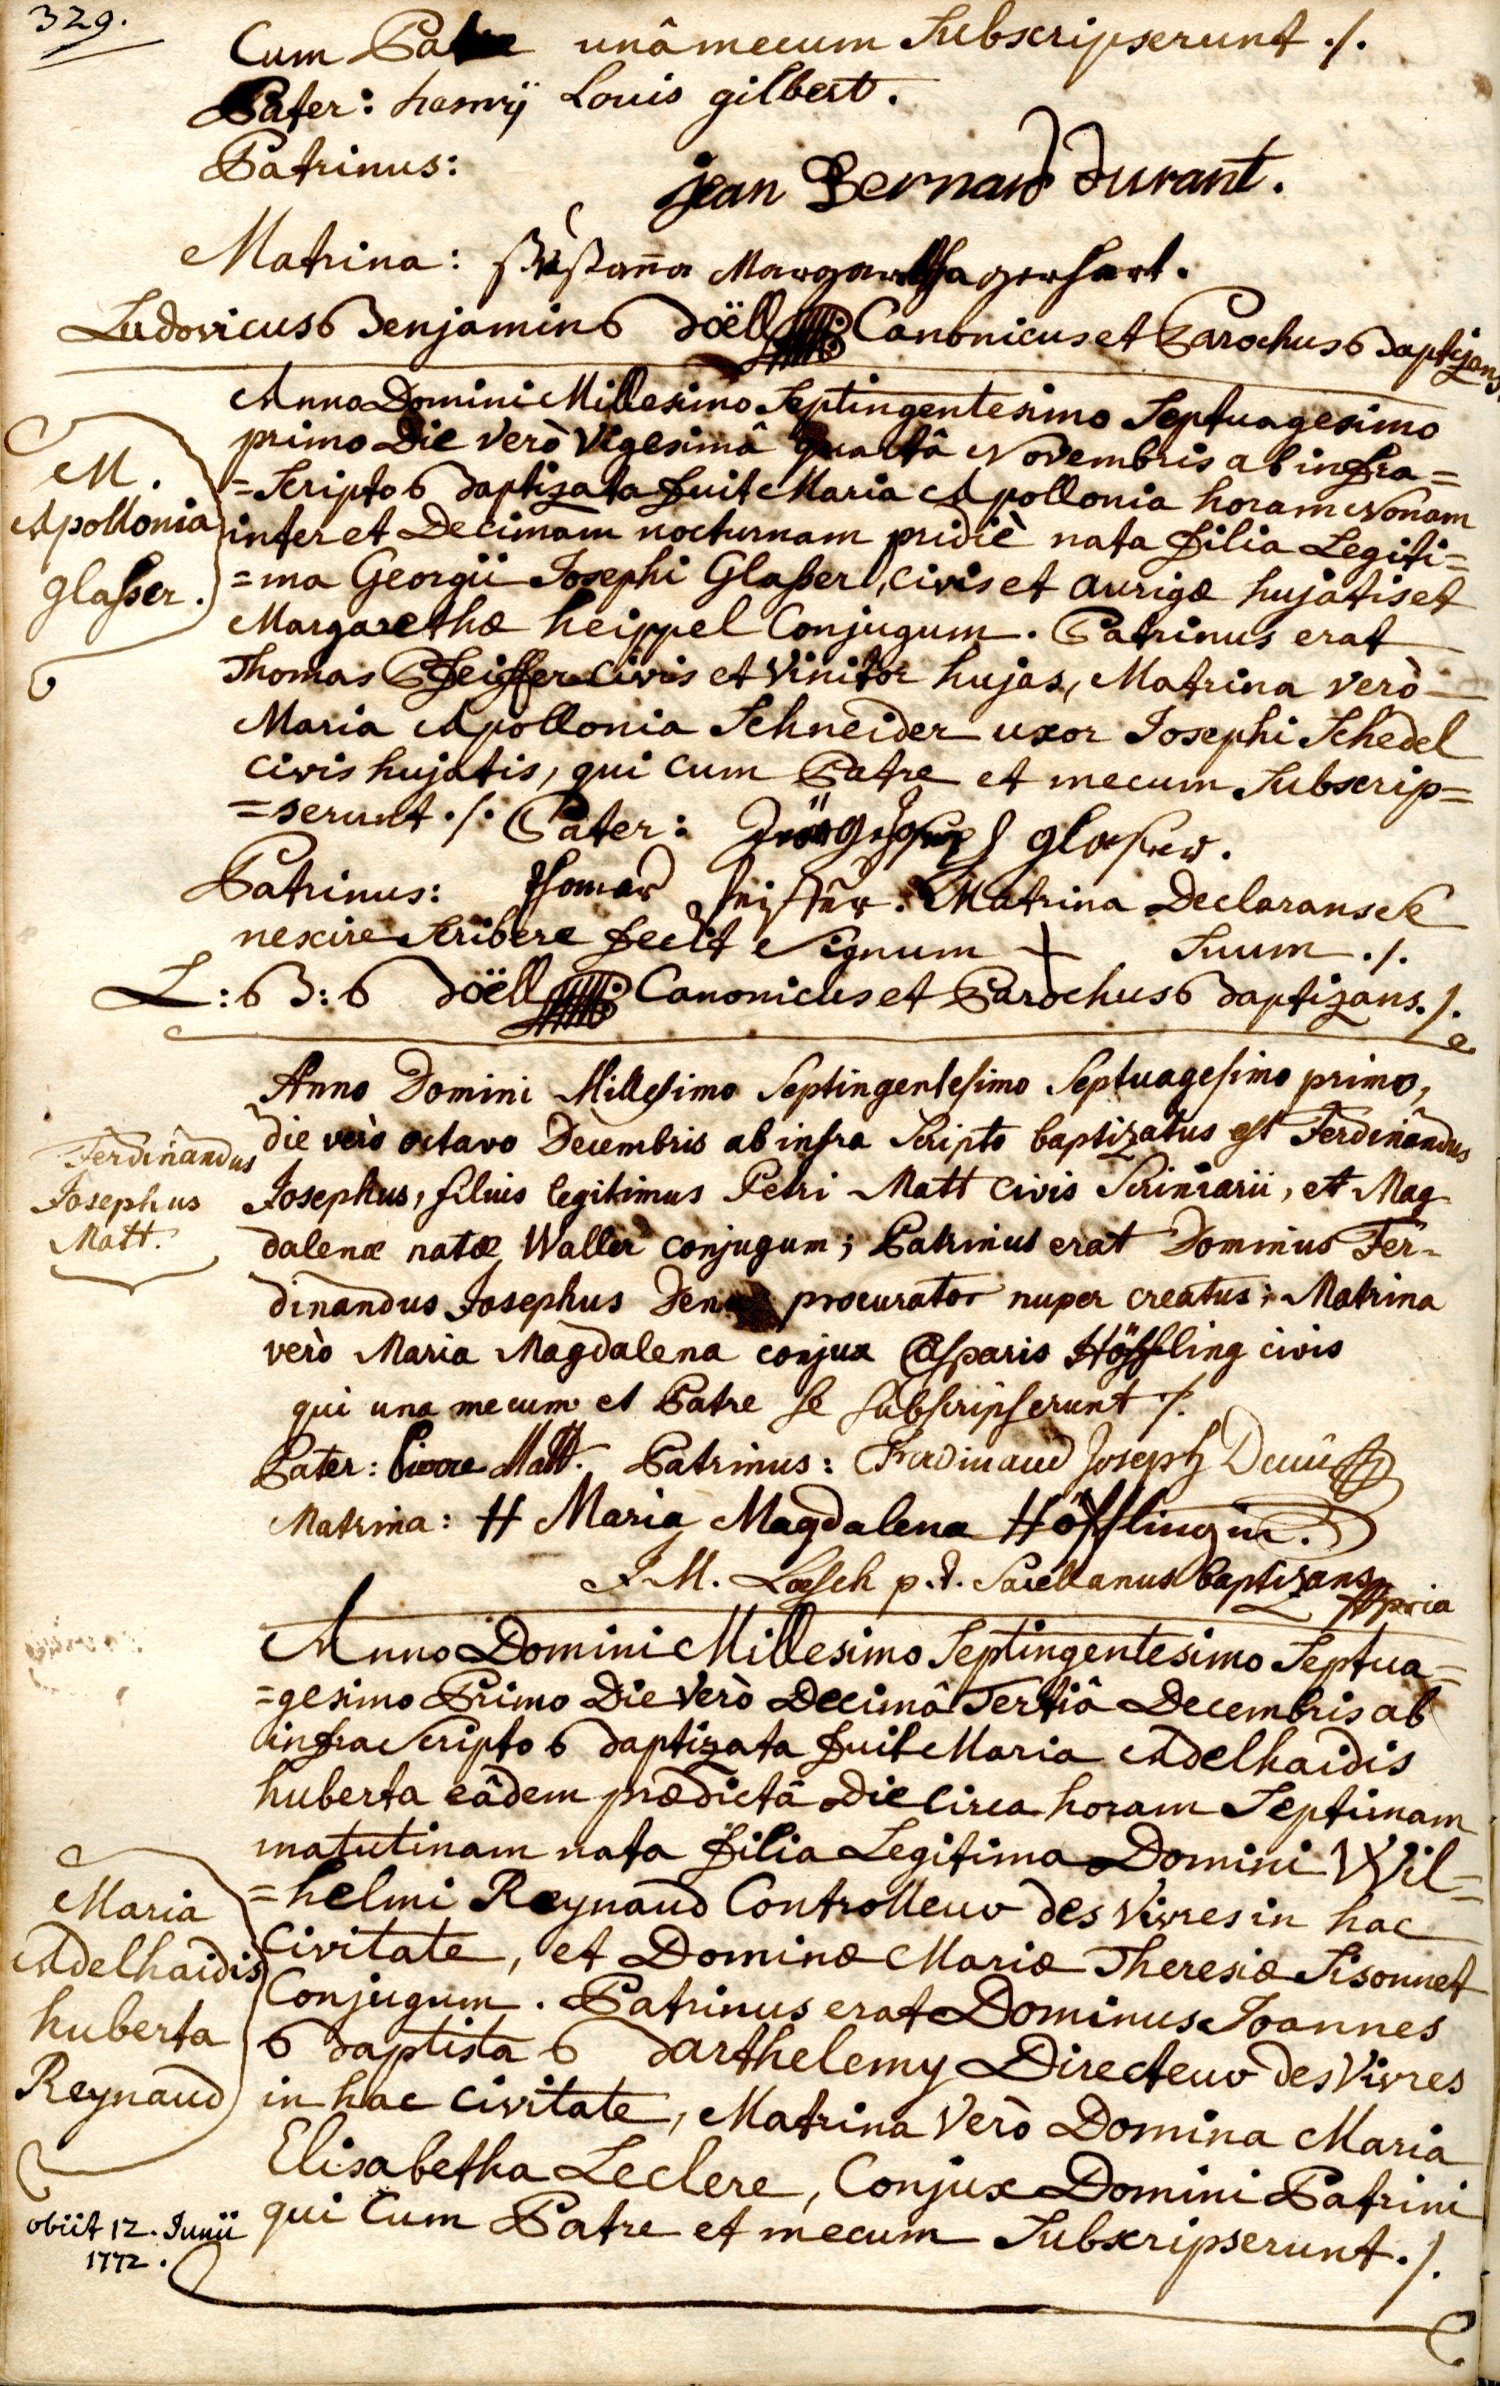 329.
Cum Patre unâ mecum Subscripserunt ./.
Pater: henrÿ Louis gilbert.
Patrinus:
jean Bernard Durant.
Matrina: Margaretha gerhart.
Ludovicus Benjamin Doëll Canonicus et Parochus Baptizans
Anno Domini Millesimo Septingentesimo Septuagesimo
primo Die Verò Vigesimâ quartâ Novembris ab infra=
M.
Apollonia
Glaßer.
=Scripto Baptizata fuit Maria Apollonia horam Nonam
inter et Decimam nocturnam pridiè nata filia Legiti=
=ma Georgii Josephi Glaßer, civis et aurigæ hujatis et
Margarethæ heippel Conjugum. Patrinus erat
Thomas Pfeiffer civis et Vinitor hujas, Matrina verò
Maria Apollonia Schneider uxor Josephi Schedel
civis hujatis, qui cum Patre et mecum Subscrip=
=serunt ./. Pater: Jörg Joseph glaßer.
Patrinus: Thomas Feiffer. Matrina Declarans se
nescire Scribere fecit Signum + Suum ./.
L: B: Doëll Canonicus et Parochus Baptizans ./.
Anno Domini Millesimo Septingentesimo Septuagesimo primo,
Ferdinandus
Josephus
Matt.
die verò octavo Decembris ab infra Scripto baptizatus est Ferdinandus
Josephus, filius legitimus Petri Matt civis Scriniarii, et Mag
dalenæ natæ Waller conjugum; Patrinus erat Dominus Fer-
dinandus Josephus procurator nuper creatus; Matrina
verò Maria Magdalena conjux Casparis Höffling civis
qui una mecum et Patre se subscripserunt ./.
Pater: Pierre Matt. Patrinus: Ferdinand Joseph
Matrina: # Maria Magdalena Höfflingin.
J. M. Loesch p. t. Sacellanus baptizans mppria
Anno Domini Millesimo Septingentesimo Septua=
=gesimo Primo Die Verò Decimâ Tertiâ Decembris ab
infra Scripto Baptizata fuit Maria Adelhaidis
huberta eâdem prædictâ Die Circa horam Septimam
matutinam nata filia Legitima Domini Wil=
Maria
Adelhaidis
huberta
Reynaud
=helmi Reynaud Controlleur des Vivres in hac
Civitate, et Dominæ Mariæ Theresiæ Sisonnet
Conjugum. Patrinus erat Dominus Joannes
Baptista Barthelemy Directeur des Vivres
in hac Civitate, Matrina Verò Domina Maria
Elisabetha Leclere, Conjux Domini Patrini
qui Cum Patre et mecum Subscripserunt ./.
obiit 12. Junii
1772.